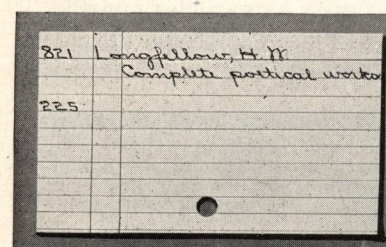 821 Longfellow, H. W.
Complete poetical works
225